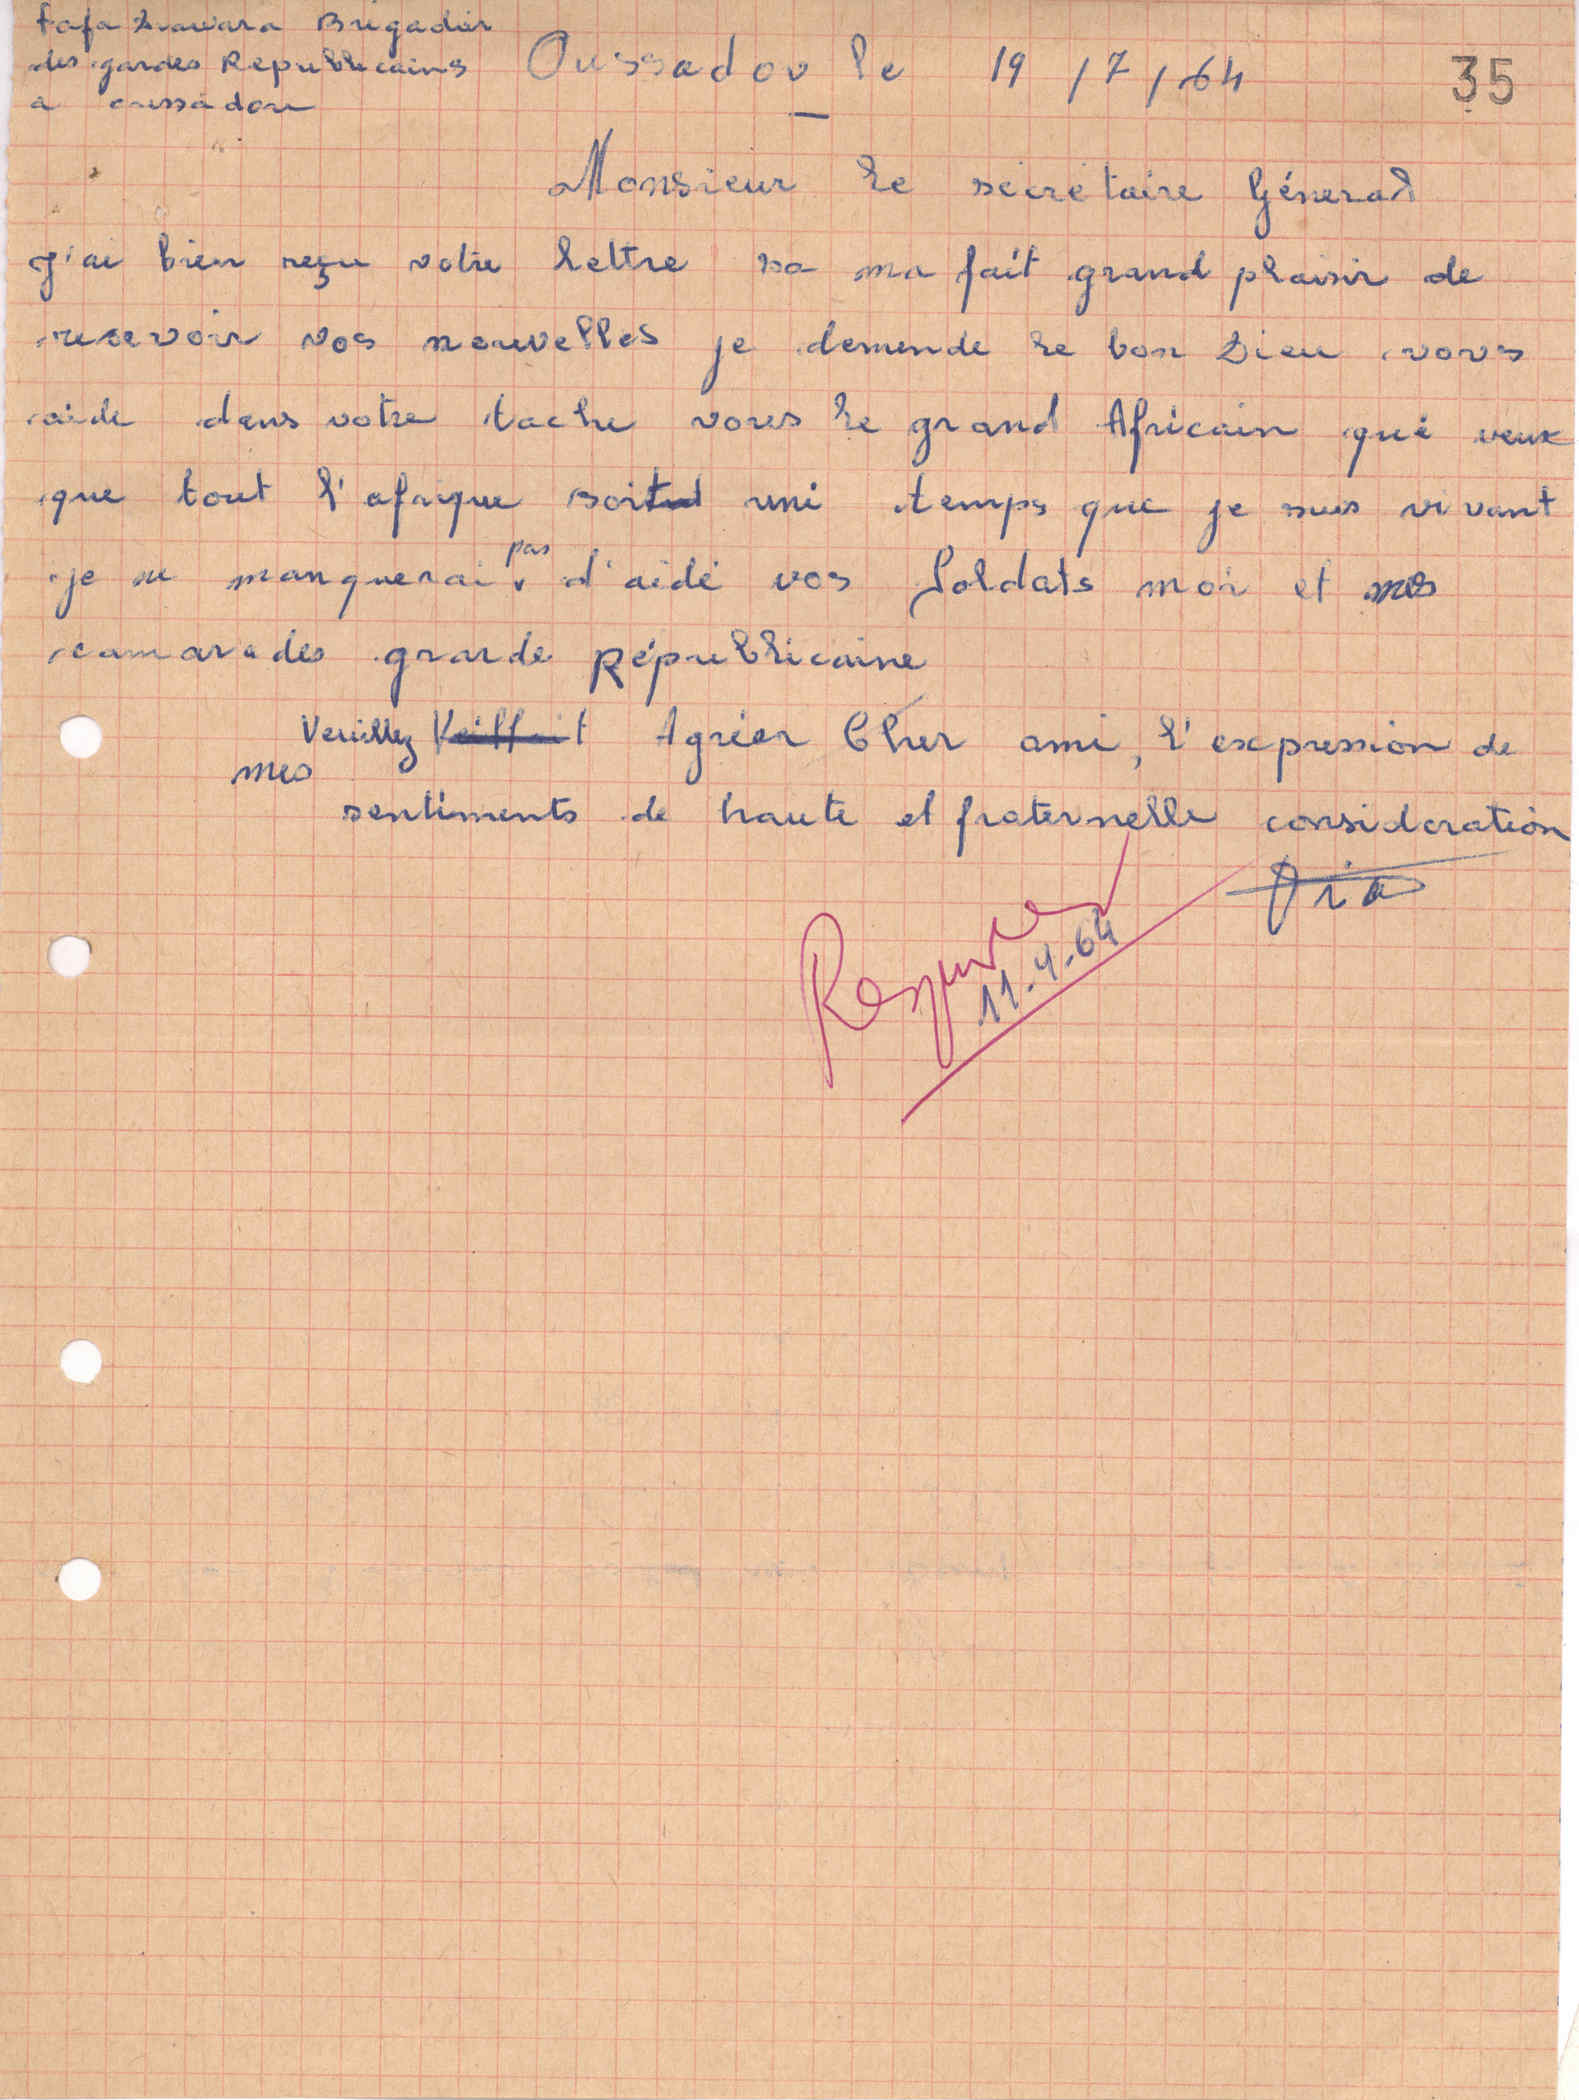 Fafa Diawara Brigadier
des gardes Republicains
a oussadou
Oussadou le 19/7/64
35
Monsieur le sécrétaire Géneral
J'ai bien reçu votre lettre sa ma fait grand plaisir de
recevoir vos nouvelles je demende le bon Dieu vous
aide dans votre tache vous le grand Africain qui veux
que tout l'afrique soit uni temps que je suis vivant
je ne manquerai pas d'aidé vos Soldats moi et mes
camarades grarde Républicaine
Veuillez Agréer Cher ami, l'expression de
mes
sentiments de haute et fraternelle consideration
Dia
11-4-64